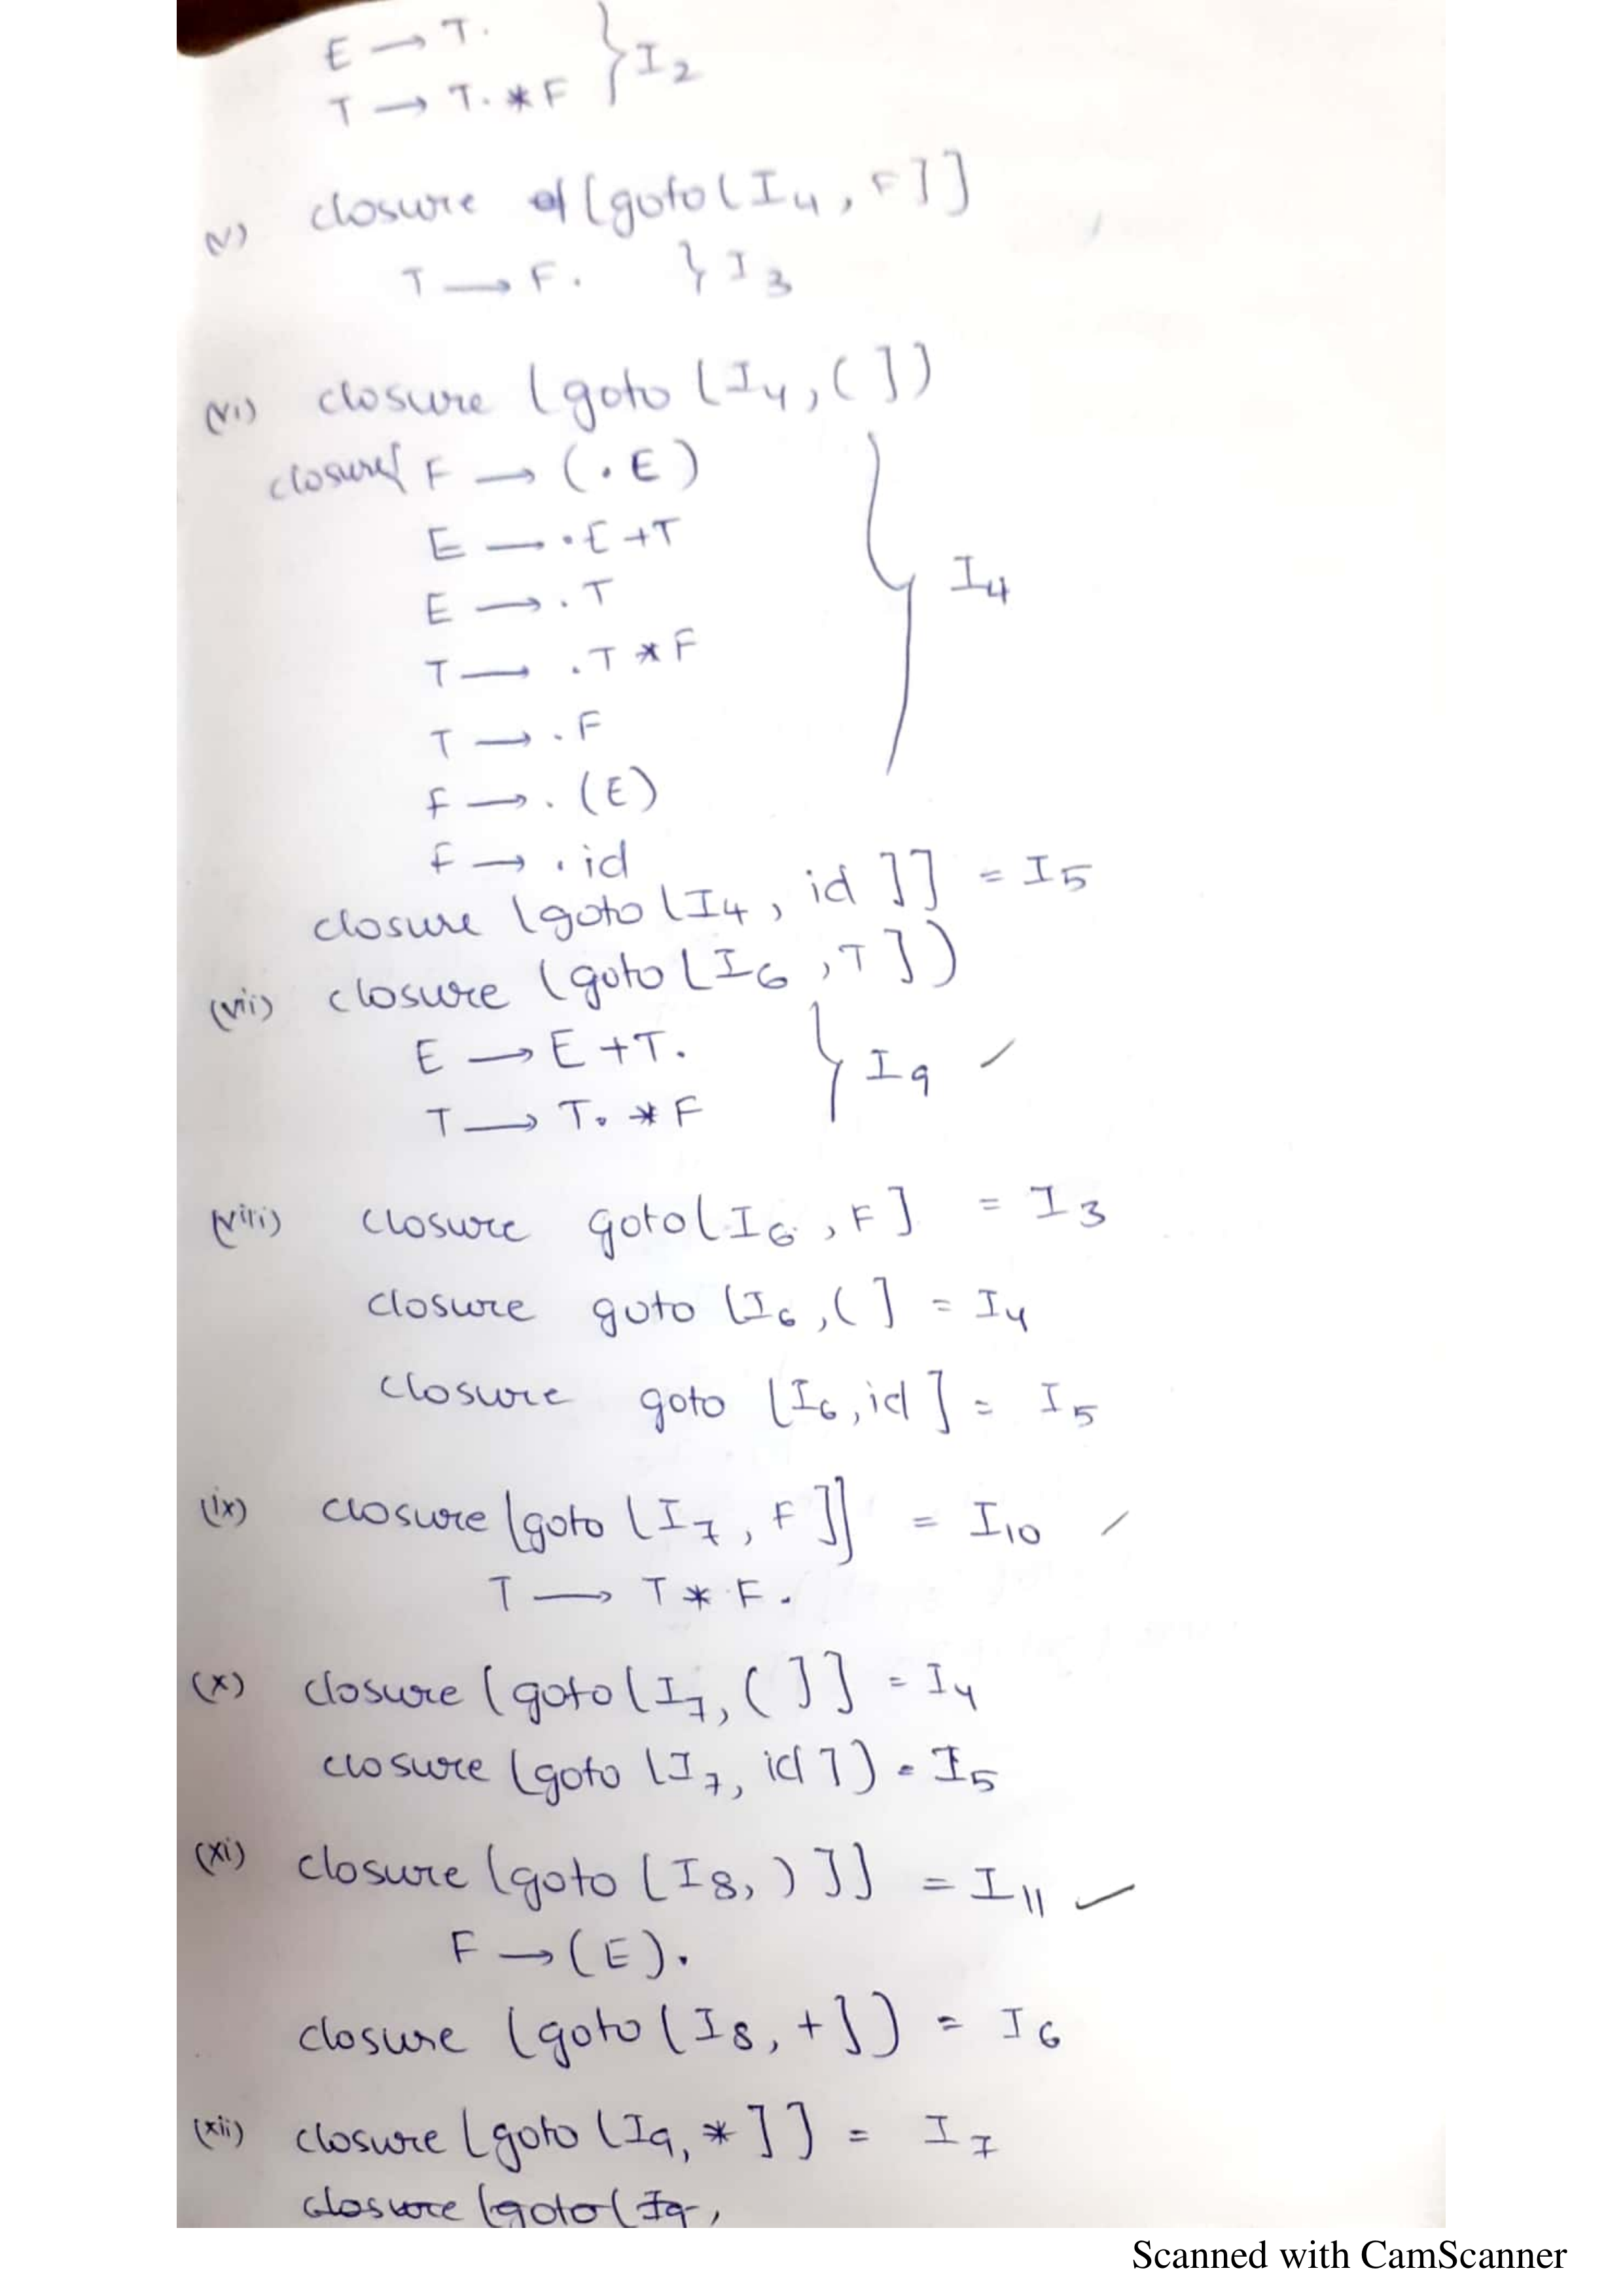 E → T.
T → T. * F } I2
(v) closure of [goto[I4, F]]
T → F. } I3
(vi) closure (goto [I4, (])
closure{ F → (.E)
E → .E+T
E → .T
T → .T * F
T → .F
F → .(E)
F → .id
} I4
closure [goto [I4, id]] = I5
(vii) closure (goto [I6, T])
E → E+T.
T → T. * F } I9 ✓
(viii) closure goto[I6, F] = I3
closure goto [I6, (] = I4
closure goto [I6, id] = I5
(ix) closure [goto [I7, F]] = I10 ✓
T → T * F.
(x) closure [goto [I7, (]] = I4
closure (goto [I7, id]) = I5
(xi) closure [goto [I8, )]] = I11 ✓
F → (E).
closure (goto [I8, +]) = I6
(xii) closure [goto [I9, *]] = I7
closure (goto [I9,
Scanned with CamScanner